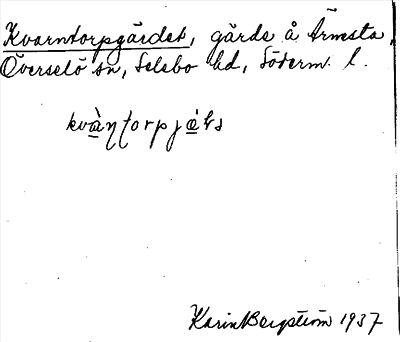 Kvarntorpgärdet, gärde å Ärmsta,
Överselö sn, Selebo hd, Söderm. l.
Karin Bergström 1937